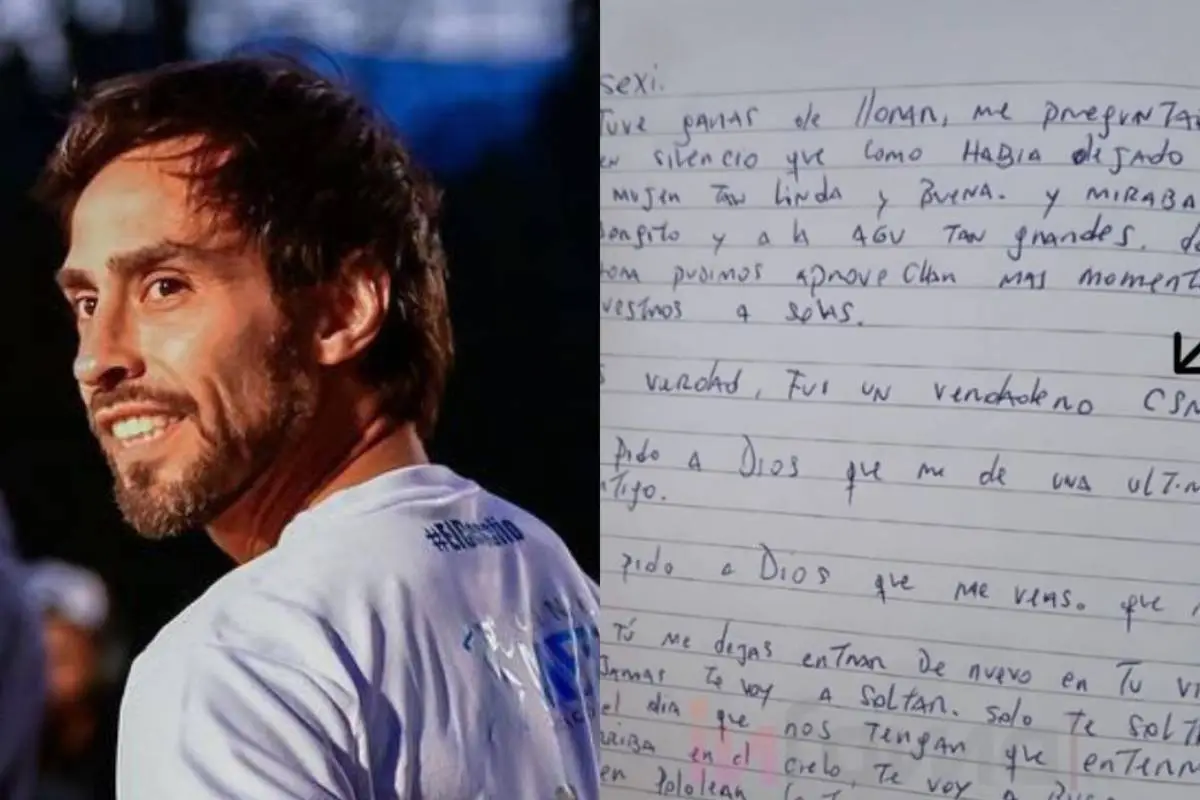 #ElDesafío
sexi.
Tuve ganas de llorar, me preguntab
en silencio que como HABIA dejado
mujer tan linda y Buena. y miraba
y a la AGU tan grandes.
pudimos aprovechar mas moment
a solas.
verdad, Fui un verdadero CSM
pido a Dios que me de una ultim
ntigo.
pido a Dios que me veas. que
Tú me dejas entrar de nuevo en Tu vi
Jamas te voy a soltar. Solo te solt
el dia que nos tengan que enterr
arriba en el cielo, te voy a
en pololear